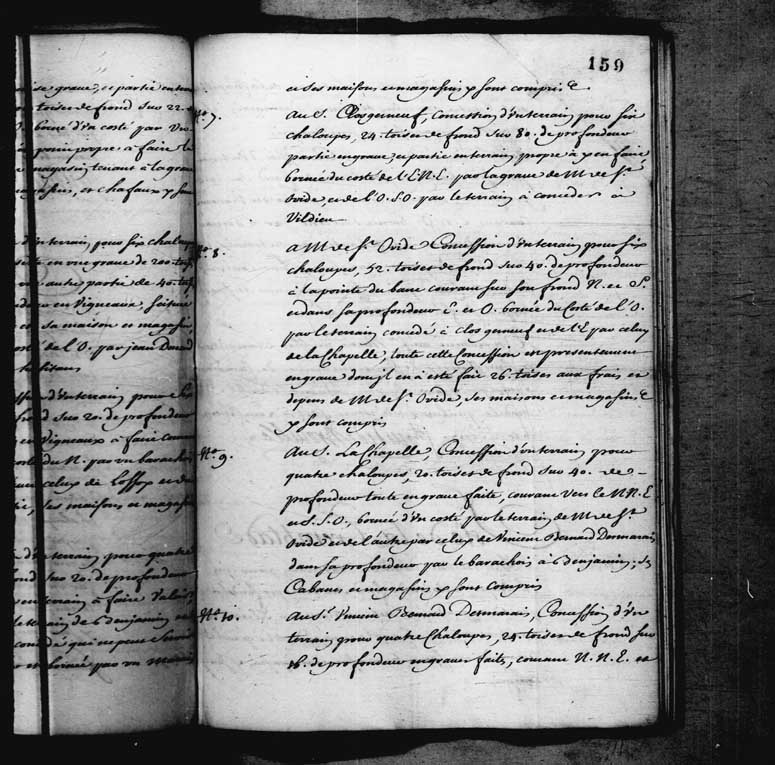 159
et ses maisons et magasins y sont compris &
No. 7.
au S. Closgeneuf, concession d'un terrain pour six
chaloupes, 24. toises de frond sur 80. de profondeur
partie en grave, et partie en terrain propre à y en faire
bornée du costé de l'E.N.E. par la grave de M. de St.
Ovide et de l'O.S.O. par le terrain à conceder à
Vildieu
No. 8.
a M. de St. Ovide Concession d'un terrain pour six
chaloupes, 52. toises de frond sur 40. de profondeur
à la pointe du banc courant sur son frond N. et S.
et dans sa profondeur E. et O. bornée du Costé de l'O.
par le terrain concedé à closgeneuf et de l'E par celuy
de la Chapelle, toute cette Concession est presentement
en grave dont il en à esté fait 26. toises aux frais et
depens de M. de St. Ovide, ses maisons et magasins &
y sont compris
No. 9.
Au S. La Chapelle, Concession d'un terrain pour
quatre chaloupes, 20. toises de frond sur 40. de
profondeur toute en grave faite, courant vers le N.N.E
et S.S.O., bornée d'un costé par le terrain de M. de St.
Ovide et de l'autre par celuy de Vincent Bernard Desmarais
dans sa profondeur par le barachois à Benjamin; ses
Cabanes et magasins y sont compris
No. 10.
Au Sr. Vincent Bernard Desmarais, Concession d'un
terrain pour quatre Chaloupes, 24. toises de frond sur
16. de profondeur en graves faits, courant N.N.E. et
ise grave, et partie en terr
toises de frond sur 22.
bornée d'un costé par Un
à faire
magasin tenant à la grave
magasins, et chafaux y sont
d'un terrain pour six chaloup
en une grave de 200. tois
une autre partie de 40. tois
en Vigneaux, faiture
et sa maison et magasin
costé de l'O. par jean Durand
habitans
d'un terrain pour six
frond sur 20. de profondeur
en Vigneaux à faire courant
costé du N. par un barachois
celuy de Loffoy et de
ses maisons et magasins
d'un terrain pour quatre
frond sur 20. de profondeur
en terrain à faire
le terrain de Benjamin
concedé qui ne peut servir
et bornée par un Marais